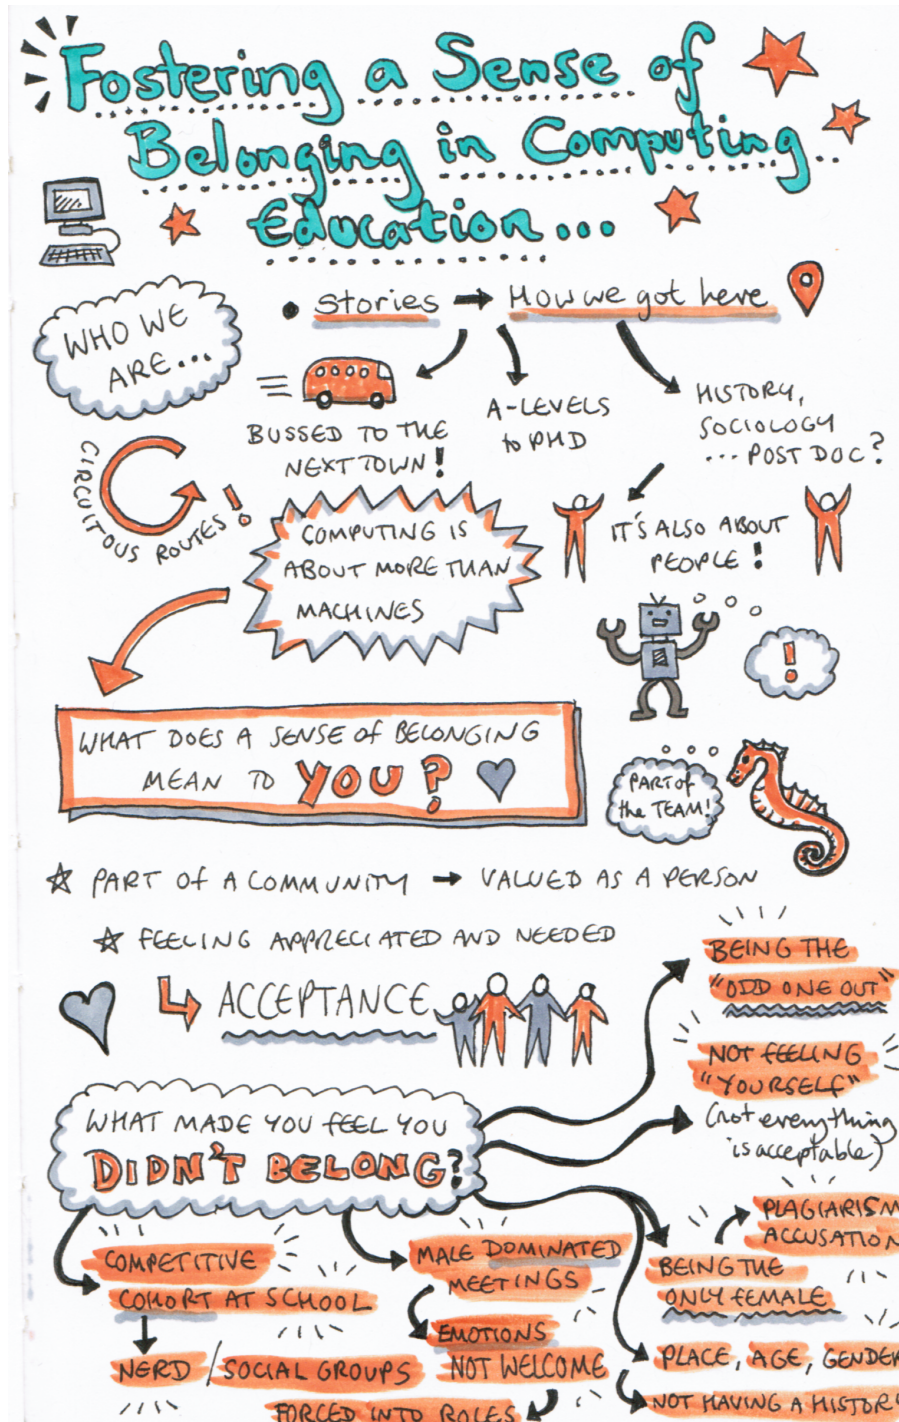 Fostering a Sense of
Belonging in Computing
Education...
WHO WE
ARE...
• Stories → How we got here
BUSSED TO THE
NEXT TOWN!
A-LEVELS
to PHD
HISTORY,
SOCIOLOGY
... POST DOC?
CIRCUITOUS ROUTES!
COMPUTING IS
ABOUT MORE THAN
MACHINES
IT'S ALSO ABOUT
PEOPLE!
!
WHAT DOES A SENSE of BELONGING
MEAN TO YOU?
PART of
the TEAM!
☆ PART OF A COMMUNITY → VALUED AS A PERSON
☆ FEELING APPRECIATED AND NEEDED
ACCEPTANCE
WHAT MADE YOU FEEL YOU
DIDN'T BELONG?
BEING THE
"ODD ONE OUT"
NOT FEELING
"YOURSELF"
(not everything
is acceptable)
COMPETITIVE
COHORT AT SCHOOL
NERD / SOCIAL GROUPS
MALE DOMINATED
MEETINGS
EMOTIONS
NOT WELCOME
FORCED INTO ROLES
BEING THE
ONLY FEMALE
PLAGIARISM
ACCUSATION
PLACE, AGE, GENDER
NOT HAVING A HISTORY